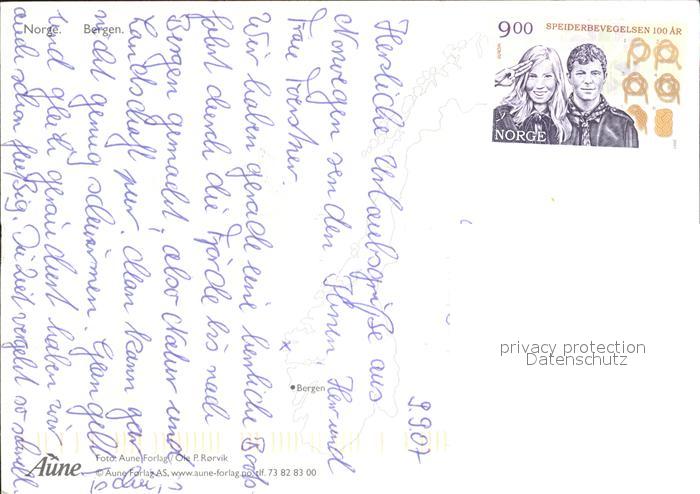 Norge. Bergen.
9.9.07
Herzliche Urlaubsgrüße aus
Norwegen senden Ihnen, Herr und
Frau Foerstner.
Wir haben gerade eine herrliche Boots-
fahrt durch die Fjorde bis nach
Bergen gemacht, also Natur und
Landschaft pur. Man kann gar
nicht genug schwärmen. Geangelt
und gleich geräuchert haben wir
auch schon fleißig. Die Zeit vergeht so schnell.
Bergen
Aune
Foto: Aune Forlag / Ole P. Rørvik
© Aune Forlag AS, www.aune-forlag.no, tlf. 73 82 83 00
9.00 SPEIDERBEVEGELSEN 100 ÅR
EUROPA
NORGE
2007
privacy protection
Datenschutz